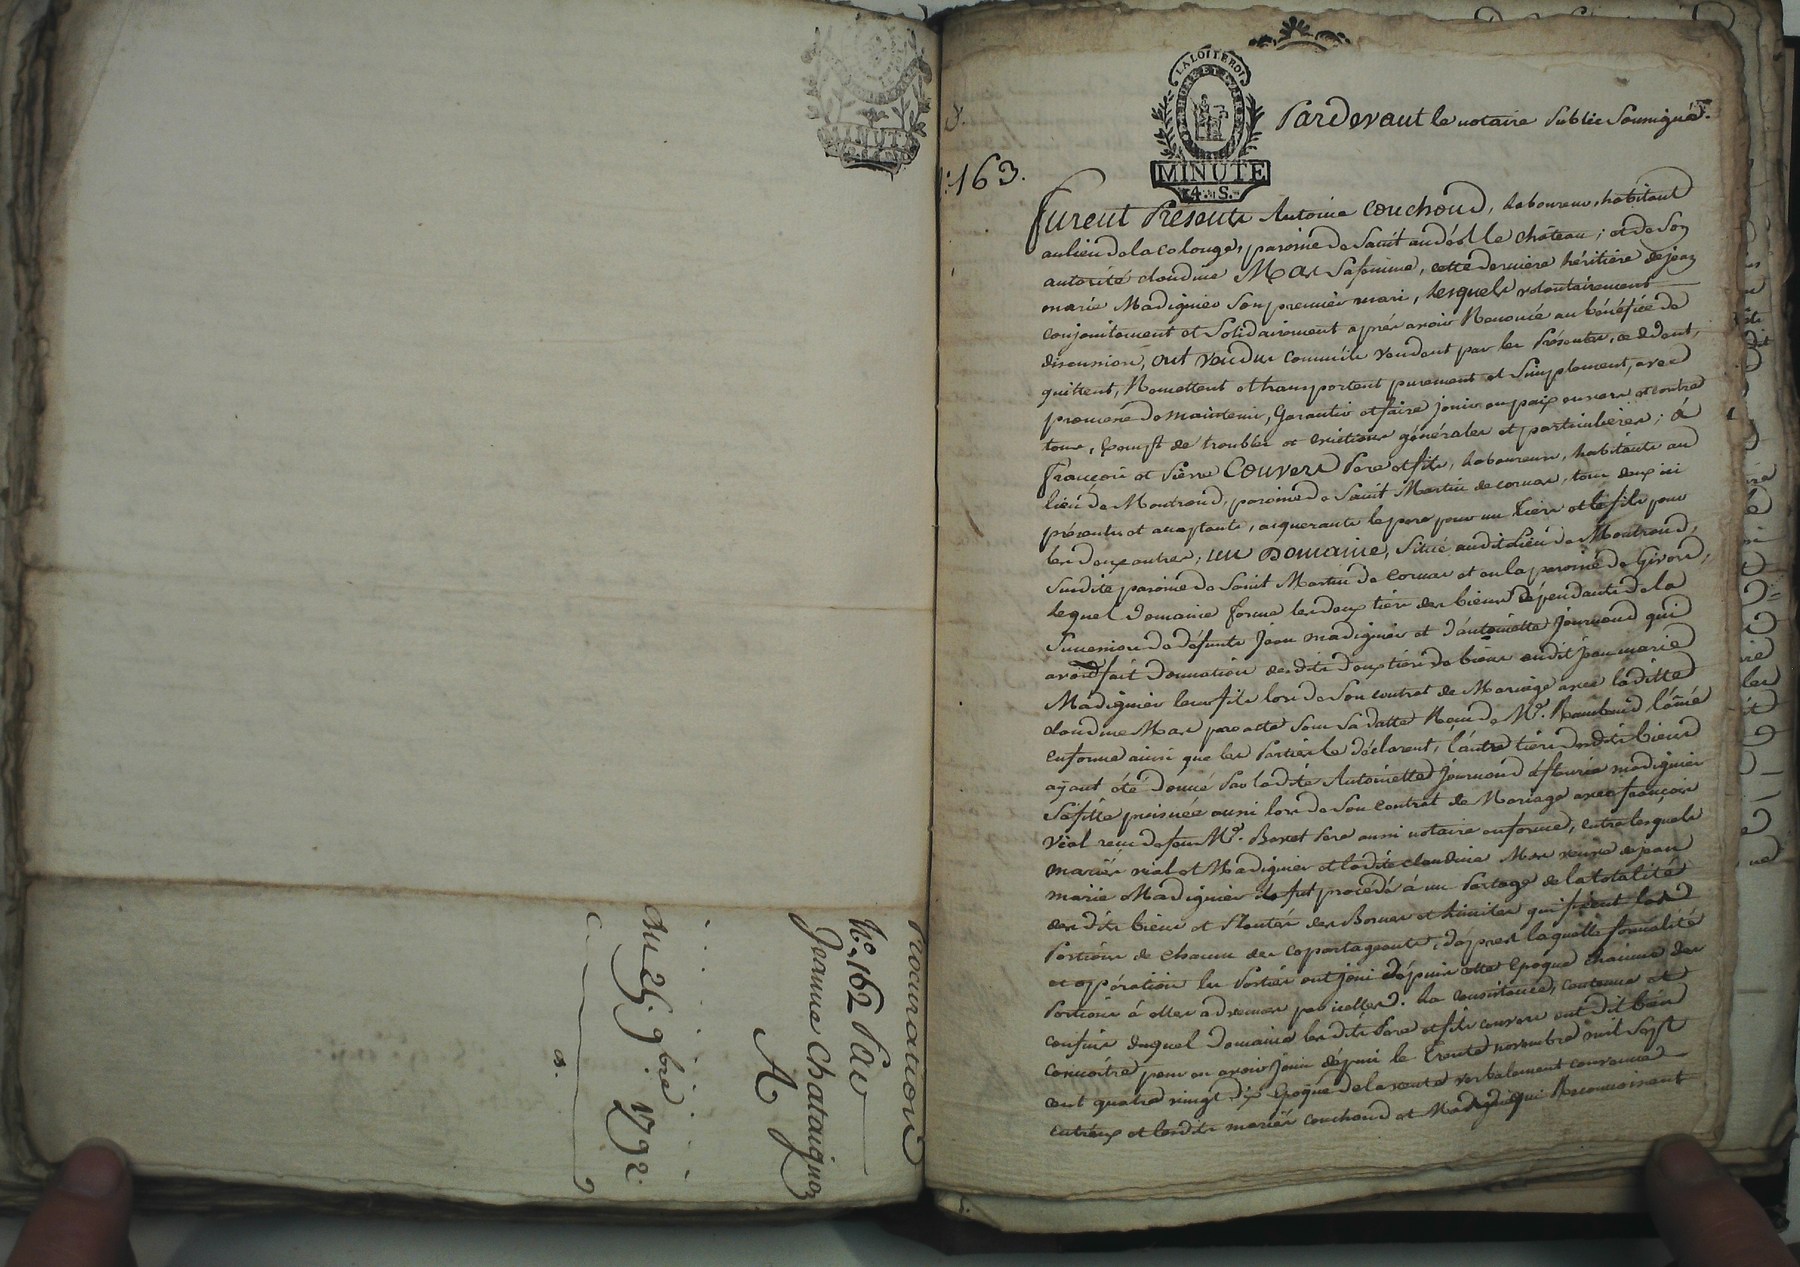 Procuration
N.o 162 Par
Jeanne Chataignon
A
Du 25. 9bre 1792.
MINUTE
LA LOI LE ROI
MINUTE
4. S.
163.
Pardevant le notaire Public Soussigné.
furent Présents Antoine Couchoud, Laboureur, habitant
au lieu de la Colonge, paroisse de Saint andéol le château; et de Son
autorité claudine Mas Sa femme, cette derniere héritiere de jean
marie Madignier Son premier mari, Lesquels volontairement
conjointement et Solidairement aprés avoir Renoncé au bénéfice de
discussion, ont vendu comm'ils vendent par les Présentes, cedent,
quittent, Remettent et transportent purement et Simplement, avec
promesse de maintenir, Garantir et faire jouir en paix envers et contre
tous, Exempt de troubles et evictions générales et particulieres; à
françois et Pierre Couvers Pere et fils, Laboureurs, habitants au
lieu de Montrond, paroisse de Saint Martin de cornas, tous deux ici
présents et acceptants, acquerants le pere pour un tiers et le fils pour
les deux autres; un Domaine, Situé audit Lieu de Montrond,
Susdite paroisse de Saint Martin de Cornas et en la paroisse de Givors,
Lequel Domaine forme les deux tiers des biens dépendants de la
Succession de défunts Jean madignier et d'antoinette Journoud qui
avoit fait Donnation desdits deux tiers de biens audit jean marie
Madignier leur fils lors de Son contrat de Mariage avec laditte
claudine Mas par acte Sous Sa datte Recu de Me. Rambaud l'ainé
en forme ainsi que les Parties le déclarent, l'autre tiers desdits biens
ayant été Donné Par ladite Antoinette Journoud à fleurie madignier
Sa fille puisnée aussi lors de Son contrat de Mariage avec françois
Vial recu de feu Me. Bonet Pere aussi notaire en forme, entre lesquels
mariés vial et Madignier et ladite claudine Mas veuve de jean
marie Madignier il fut procédé à un Partage de la totalité
desdits biens et Plantés des Bornes et Limites qui fixent les
Portions de chacun des copartageants, d'après laquelle formalité
et opération les Parties ont joui dépuis cette Epoque chacune des
Portions à elles advenues par icelles. La consistance, contenue et
confins duquel Domaine lesdits Pere et fils couvers ont dit bien
connoitre pour en avoir joui dépuis le trente novembre mil Sept
cent quatre vingt dix Epoque de la vente verbalement convenue
entr'eux et lesdits mariés couchoud et Mas qui Reconnoissent